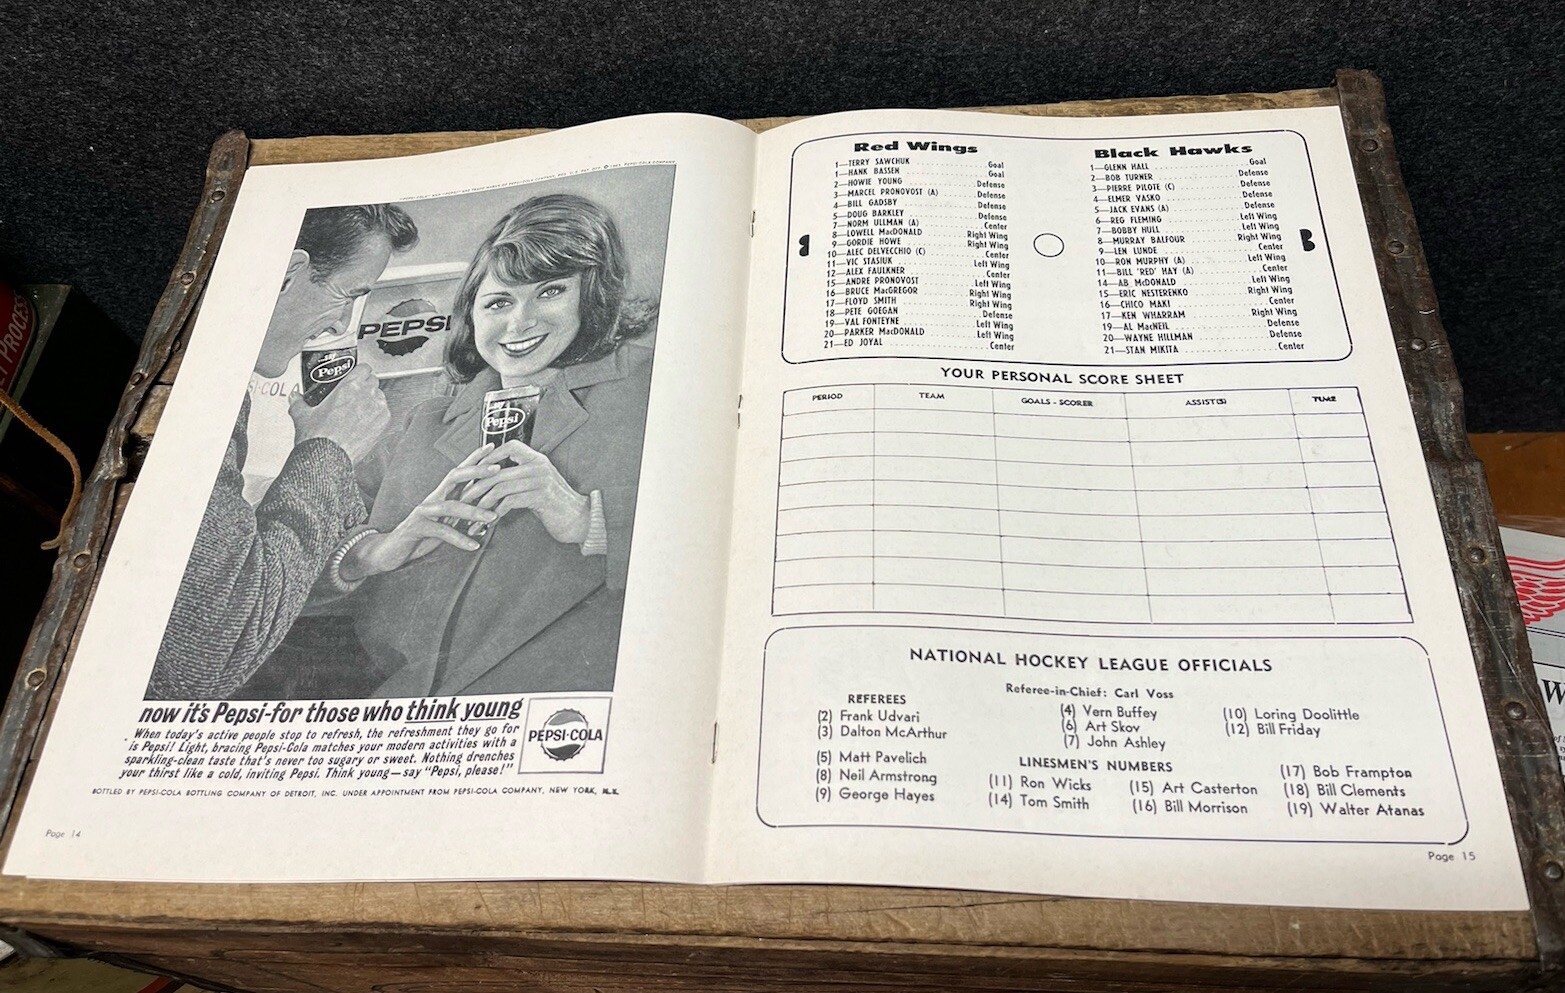 "PEPSI-COLA" AND "PEPSI" ARE TRADE MARKS OF PEPSI-COLA COMPANY, REG. U.S. PAT. OFF. © 1963, PEPSI-COLA COMPANY
PEPSI
Pepsi
SI-COLA
Pepsi
now it's Pepsi-for those who think young
When today's active people stop to refresh, the refreshment they go for
is Pepsi! Light, bracing Pepsi-Cola matches your modern activities with a
sparkling-clean taste that's never too sugary or sweet. Nothing drenches
your thirst like a cold, inviting Pepsi. Think young—say "Pepsi, please!"
PEPSI-COLA
BOTTLED BY PEPSI-COLA BOTTLING COMPANY OF DETROIT, INC. UNDER APPOINTMENT FROM PEPSI-COLA COMPANY, NEW YORK, N.Y.
Page 14
Red Wings
1—TERRY SAWCHUK Goal
1—HANK BASSEN Goal
2—HOWIE YOUNG Defense
3—MARCEL PRONOVOST (A) Defense
4—BILL GADSBY Defense
5—DOUG BARKLEY Defense
7—NORM ULLMAN (A) Center
8—LOWELL MacDONALD Right Wing
9—GORDIE HOWE Right Wing
10—ALEC DELVECCHIO (C) Center
11—VIC STASIUK Left Wing
12—ALEX FAULKNER Center
15—ANDRE PRONOVOST Left Wing
16—BRUCE MacGREGOR Right Wing
17—FLOYD SMITH Right Wing
18—PETE GOEGAN Defense
19—VAL FONTEYNE Left Wing
20—PARKER MacDONALD Left Wing
21—ED JOYAL Center
Black Hawks
1—GLENN HALL Goal
2—BOB TURNER Defense
3—PIERRE PILOTE (C) Defense
4—ELMER VASKO Defense
5—JACK EVANS (A) Defense
6—REG FLEMING Left Wing
7—BOBBY HULL Left Wing
8—MURRAY BALFOUR Right Wing
9—LEN LUNDE Center
10—RON MURPHY (A) Left Wing
11—BILL 'RED' HAY (A) Center
14—AB McDONALD Left Wing
15—ERIC NESTERENKO Right Wing
16—CHICO MAKI Center
17—KEN WHARRAM Right Wing
19—AL MacNEIL Defense
20—WAYNE HILLMAN Defense
21—STAN MIKITA Center
YOUR PERSONAL SCORE SHEET
PERIOD TEAM GOALS - SCORER ASSIST(S) TIME
NATIONAL HOCKEY LEAGUE OFFICIALS
Referee-in-Chief: Carl Voss
REFEREES
(2) Frank Udvari
(3) Dalton McArthur
(4) Vern Buffey
(6) Art Skov
(7) John Ashley
(10) Loring Doolittle
(12) Bill Friday
LINESMEN'S NUMBERS
(5) Matt Pavelich
(8) Neil Armstrong
(9) George Hayes
(11) Ron Wicks
(14) Tom Smith
(15) Art Casterton
(16) Bill Morrison
(17) Bob Frampton
(18) Bill Clements
(19) Walter Atanas
Page 15
PROCESS
W